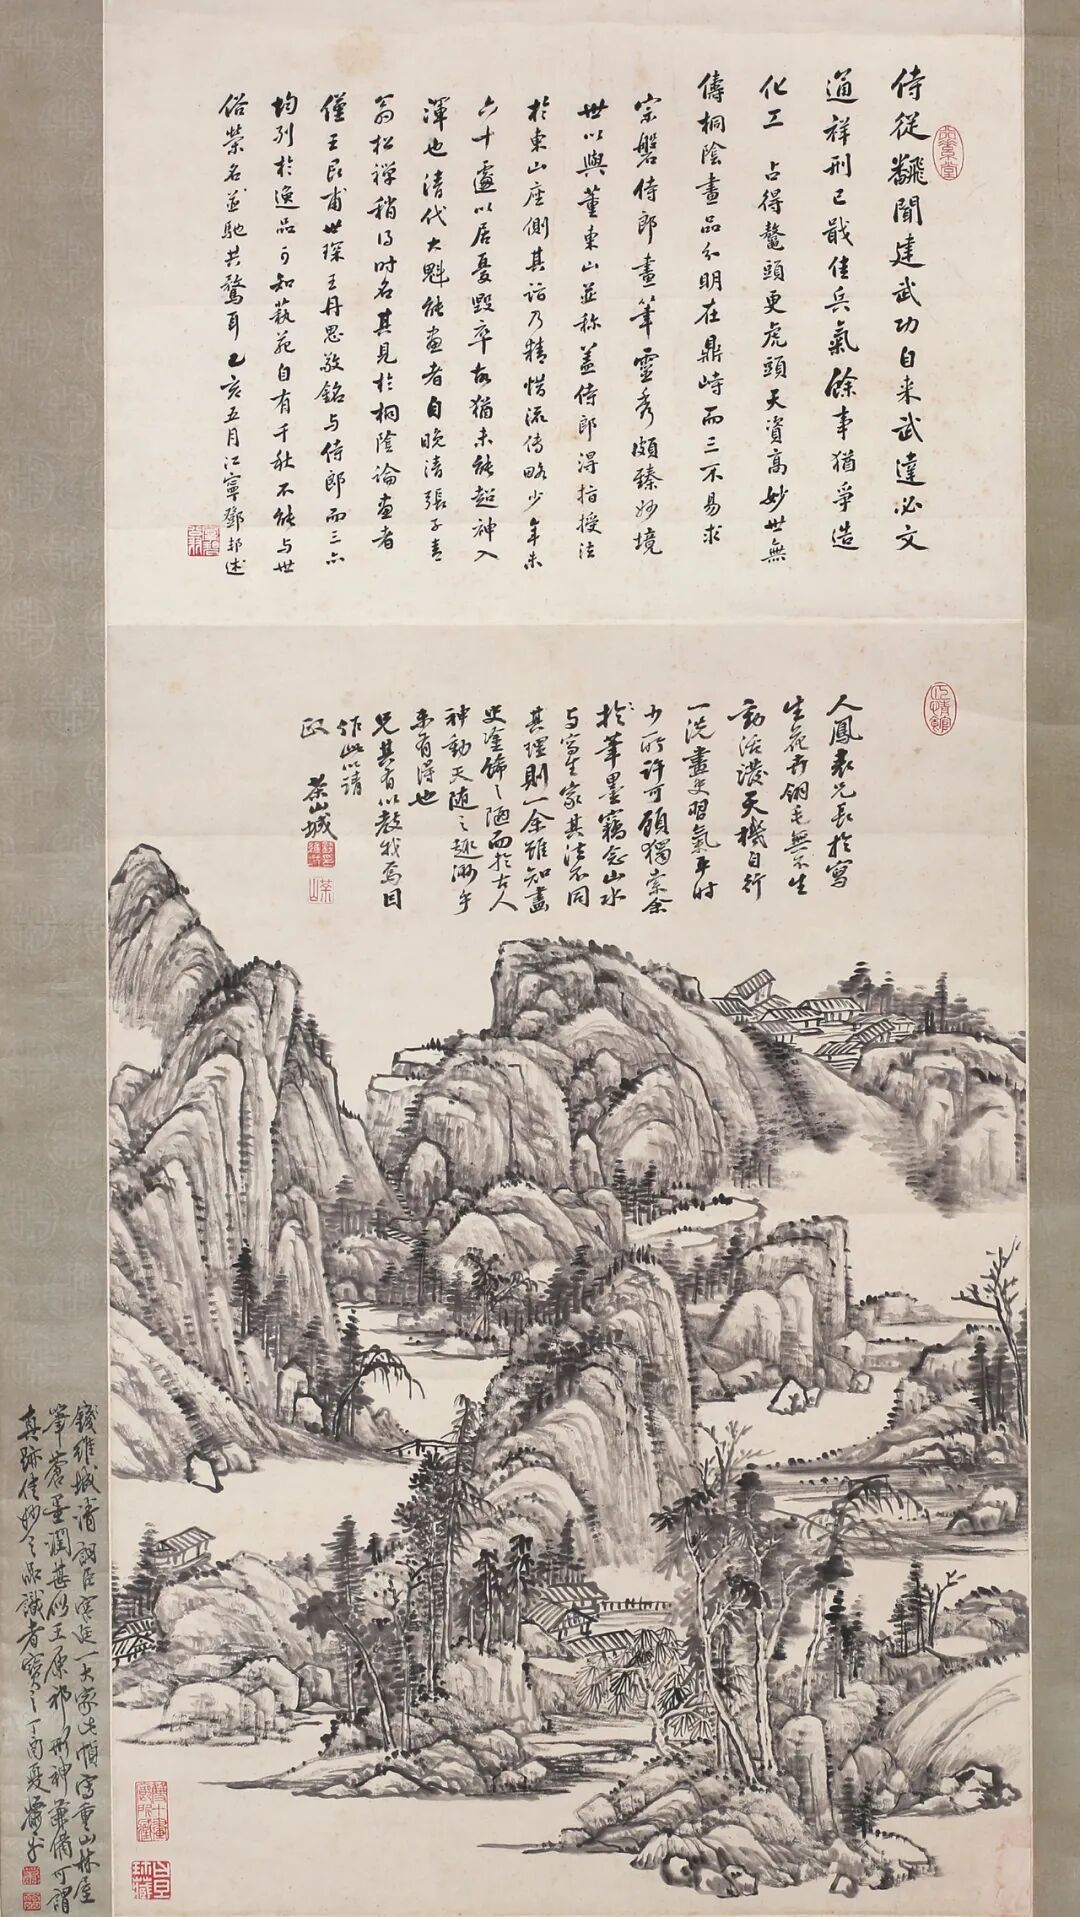 侍從飜聞建武功自来武達必文
通祥刑已戢佳兵氣餘事猶爭造
化工 占得鼇頭更虎頭天資高妙世無
儔桐陰畫品分明在鼎峙而三不易求
宗磐侍郎畫筆靈秀頗臻妙境
世以與董東山並称蓋侍郎得指授法
於東山座側其詣乃精惜流傳略少年未
六十遽以居憂毀卒故猶未能超神入
渾也清代大魁能畫者自晚清張子青
翁松禪稍得时名其見於桐陰論畫者
僅王艮甫世琛王丹思敬銘与侍郎而三亦
均列於逸品可知藝苑自有千秋不能与世
俗榮名並馳共騖耳乙亥五月江寧鄧邦述
人鳳表兄長於寫
生花卉翎毛無不生
動活潑天機自行
一洗畫史習氣平时
少所許可顧獨索余
於筆墨竊念山水
与寫生家其法不同
其理則一余雖知畫
史塗飾之陋而於古人
神動天隨之趣渺乎
未有得也
兄其有以教我焉因
作此以請
政 茶山城
茶山
錢維城清詞臣寫廷一大家此幀寫重山林屋
筆蒼墨潤甚似王原祁形神兼備可謂
真跡佳妙之品識者寶之丁酉夏蕭平